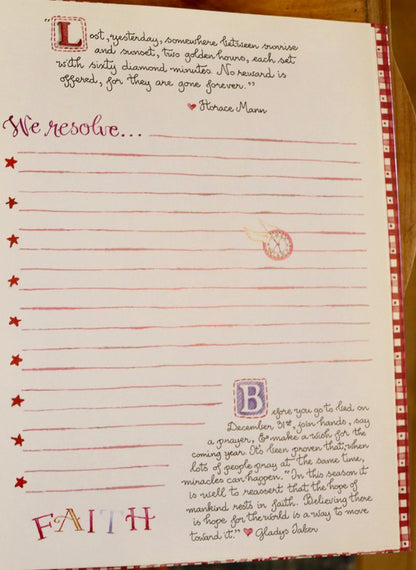 "Lost, yesterday, somewhere between sunrise
and sunset, two golden hours, each set
with sixty diamond minutes. No reward is
offered, for they are gone forever."
♥ Horace Mann
We resolve...
Before you go to bed on
December 31st, join hands, say
a prayer, & make a wish for the
coming year. Its been proven that, when
lots of people pray at the same time,
miracles can happen. "In this season it
is well to reassert that the hope of
mankind rests in faith. Believing there
is hope for the world is a way to move
toward it." ♥ Gladys Taber
FAITH